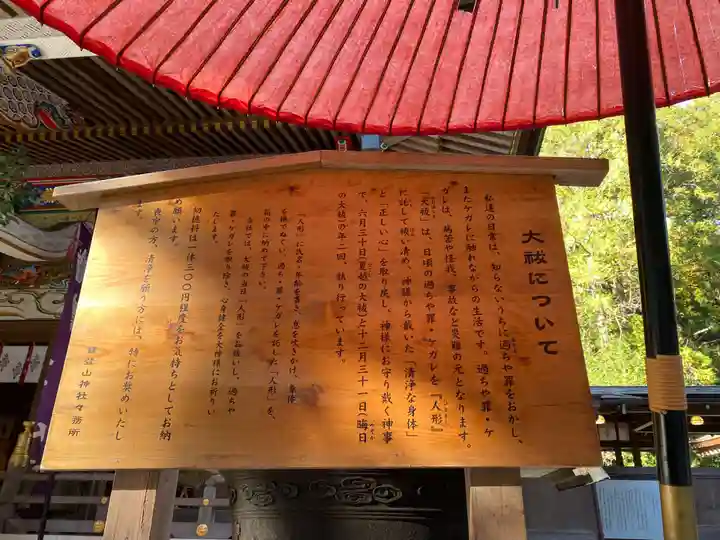 大祓について
私達の日常は、知らないうちに過ちや罪をおかし、
またケガレに触れながらの生活です。過ちや罪・ケ
ガレは、病苦や怪我、事故など災難の元となります。
「大祓」は、日頃の過ちや罪・ケガレを『人形』
に託して祓い清め、神様から戴いた「清浄な身体」
と「正しい心」を取り戻し、神様にお守り戴く神事
で、六月三十日（夏越の大祓）と十二月三十一日（晦日
の大祓）の年二回、執り行っています。
「人形」に氏名・年齢を書き、息を吹きかけ、身体
を撫でぬぐい、過ち・罪・ケガレを託した「人形」を、
箱の中に納めて下さい。
当社では、大祓の当日「人形」をお祓いし、過ちや
罪・ケガレを取り除き、心身健全を大神様にお祈りい
たします。
初穂料は一体三〇〇円程度をお気持ちとしてお納
め願います。
喪中の方、清浄を願う方には、特にお奨めいたし
ます。
寳登山神社々務所